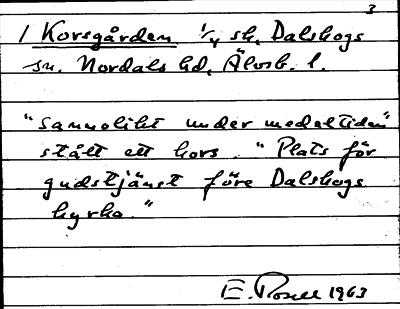 3
1 Korsgården 1/4 sk, Dalskogs
sn. Nordals hd, Älvsb. l.
"Sannolikt under medeltiden"
stått ett kors. "Plats för
gudstjänst före Dalskogs
kyrka."
E. Rosell 1963